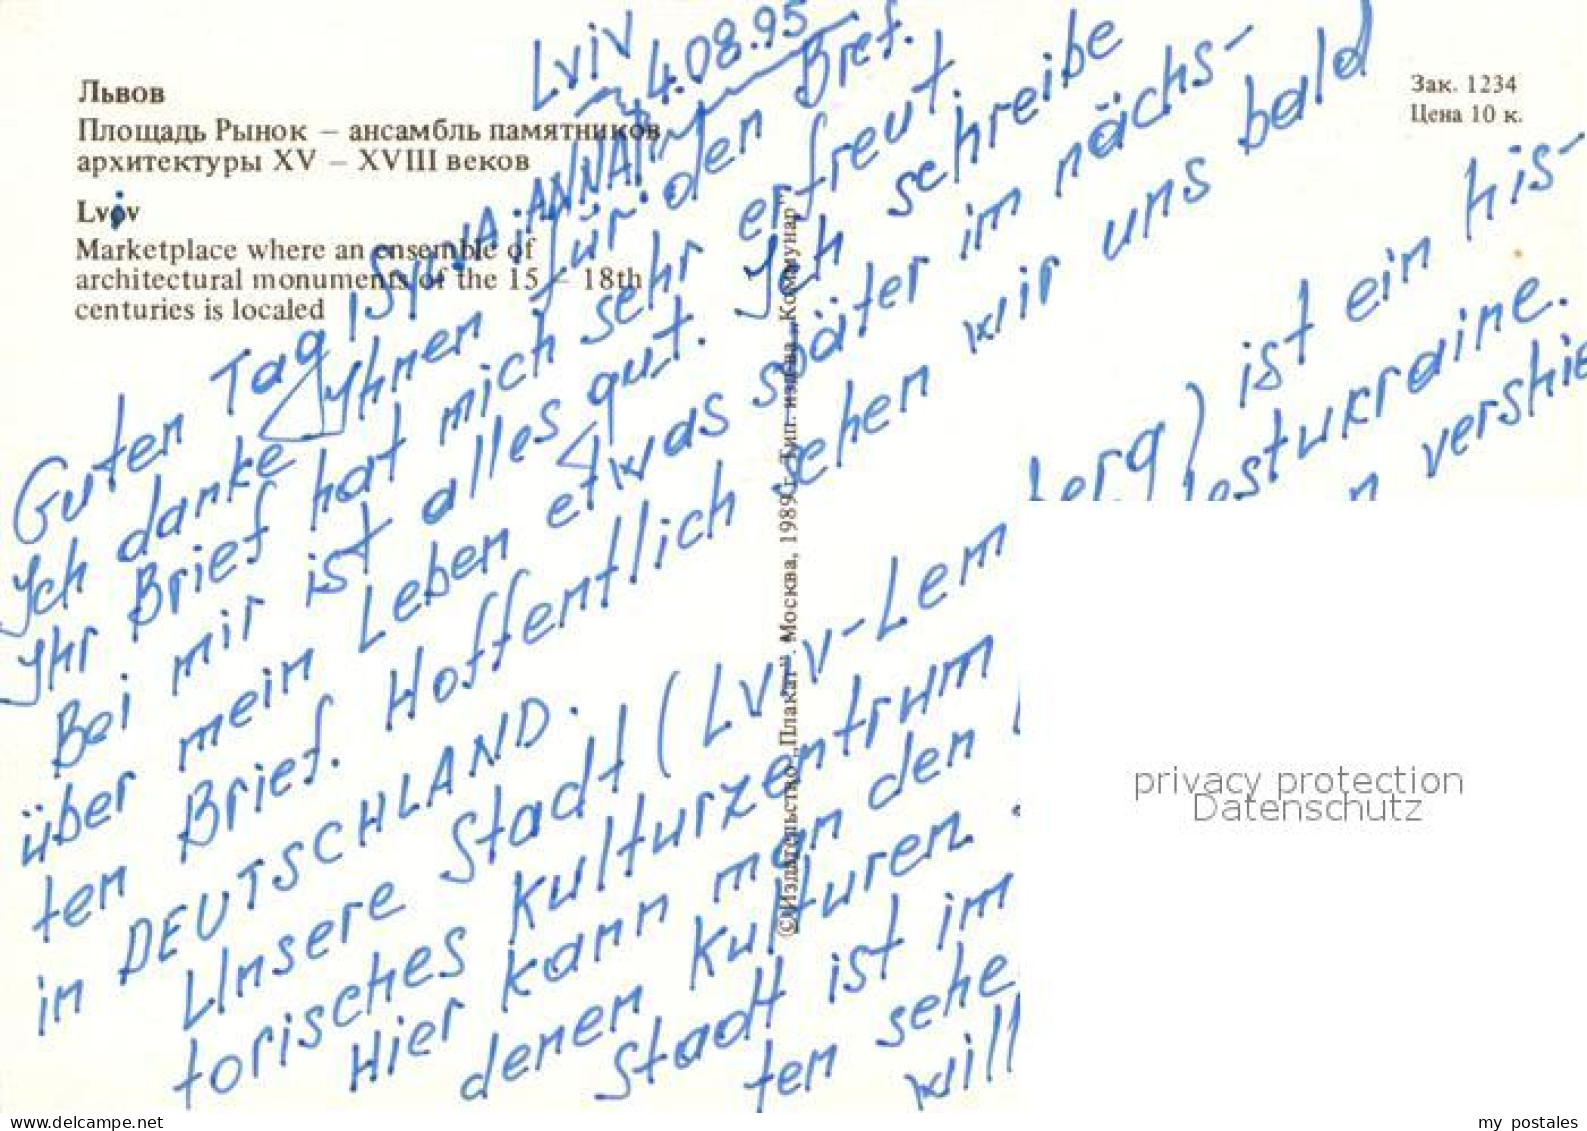 Львов
Площадь Рынок – ансамбль памятников
архитектуры XV – XVIII веков
Lviv
Marketplace where an ensemble of
architectural monuments of the 15 – 18th
centuries is localed
Зак. 1234
Цена 10 к.
© Издательство „Плакат“. Москва, 1989 г. Тип. изд-ва „Коммунар“
Lviv
4.08.95
Guten Tag, SYLVIA ANNA!
Ich danke Ihnen für den Brief.
Ihr Brief hat mich sehr erfreut.
Bei mir ist alles gut. Ich schreibe
über mein Leben etwas später im nächs-
ten Brief. Hoffentlich sehen wir uns bald
in DEUTSCHLAND.
Unsere Stadt (Lviv-Lem berg) ist ein his-
torisches Kulturzentrum Westukraine.
Hier kann man den n vershie
denen Kulturen
Stadt ist im
ten sehe
will
privacy protection
Datenschutz
www.delcampe.net
my_postales